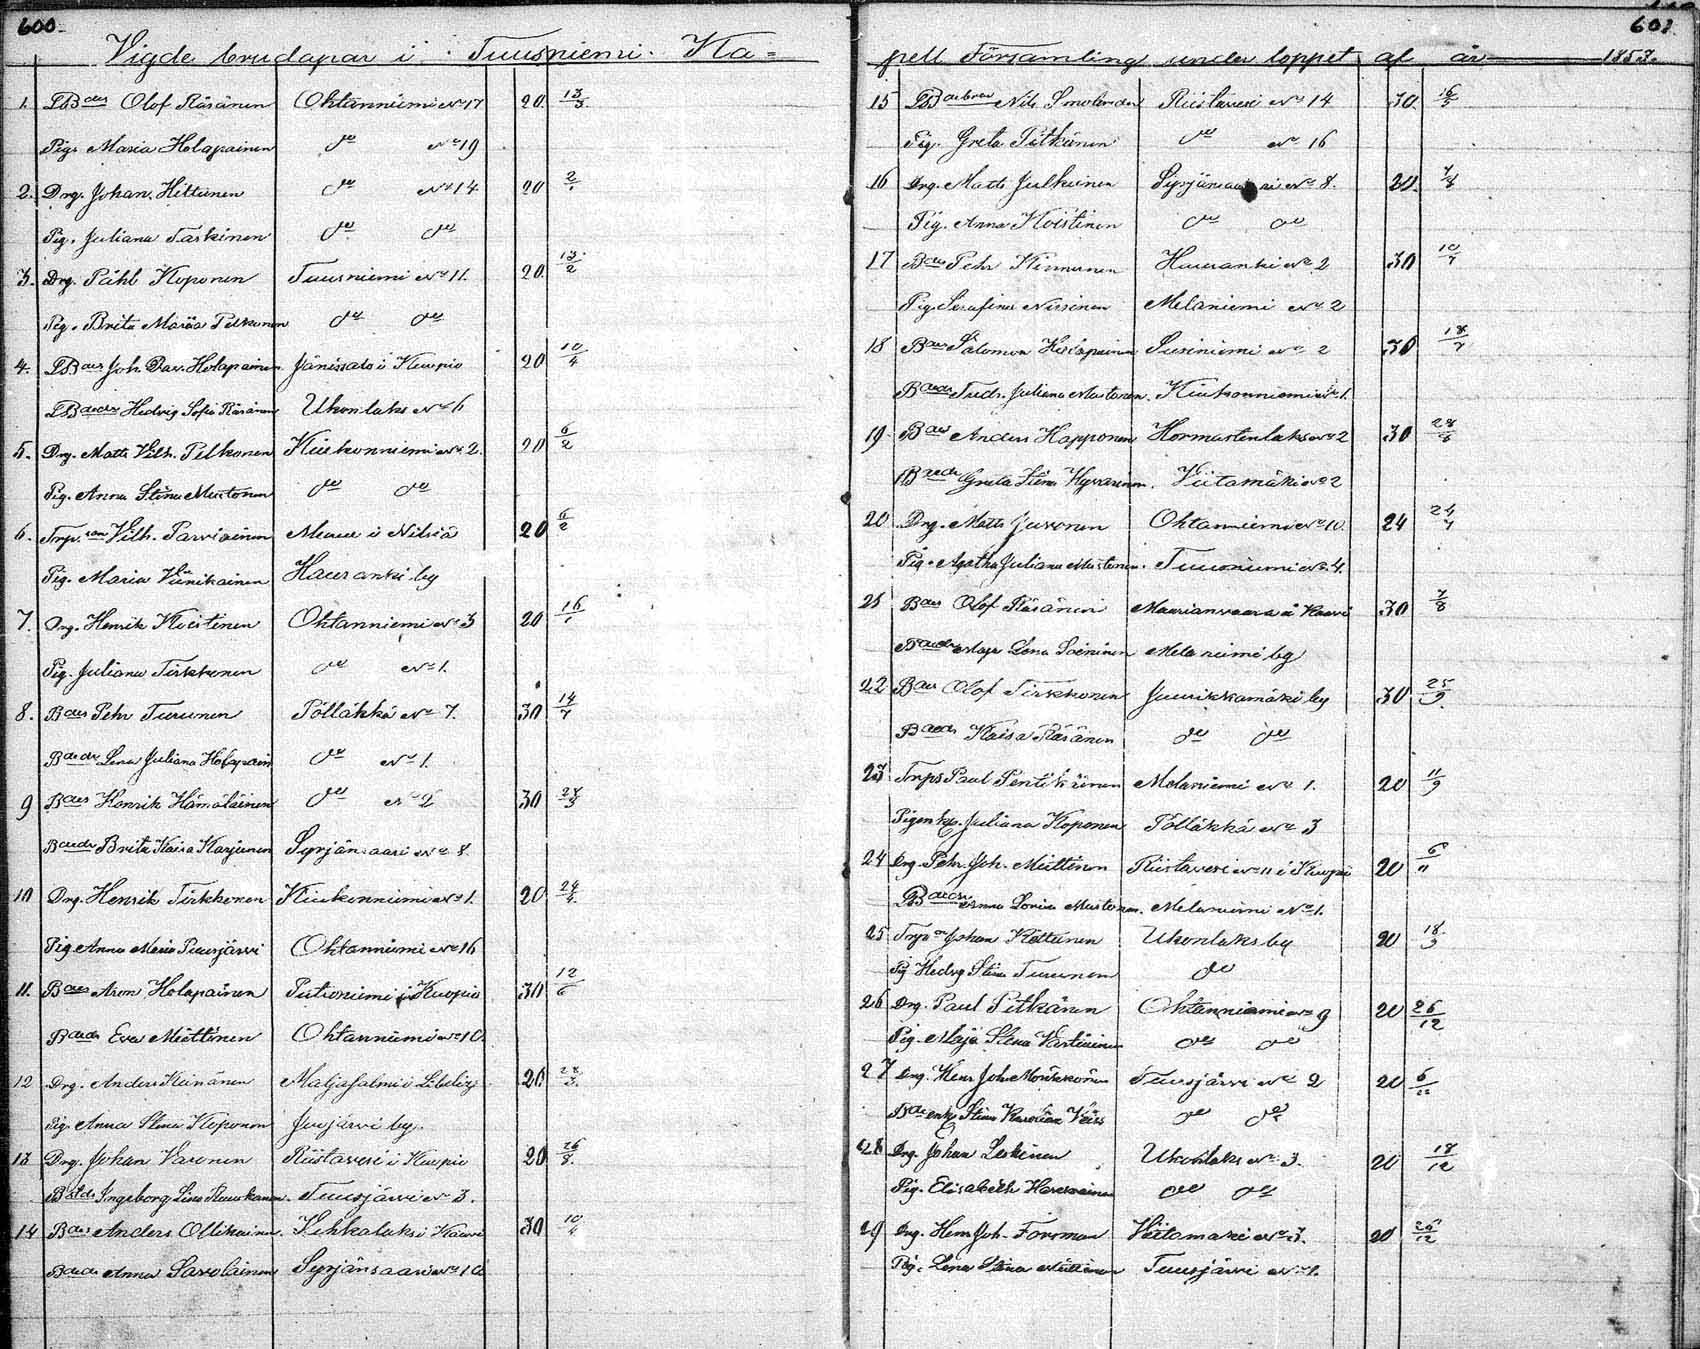 600.
Vigde brudapar i Tuusniemi Ka=
1. LBaes Olof Räsänen Ohtanniemi No 17 20. 13/3
Pigs Maria Holapainen do No 19
2. Drg. Johan Hittunen do No 14 20 2/1
Pig. Juliana Taskinen do do
3. Drg. Påhl Koponen Tuusniemi No 11. 20. 13/2
Pig. Brita Maria Pelkonen do do
4. LBaes Joh. Dav. Holapainen Jänissalo i Kuopio 20 10/4
LBaedr Hedvig Sofia Räsänen Ukonlaks No 6
5. Drg. Matts Vilh. Pelkonen Kiukonniemi No 2. 20 6/2
Pig. Anna Stina Mustonen do do
6. Trp. son Vilh. Parviainen i Nilsiä 20 6/2
Pig. Maria Viinikainen Hauranki by
7. Drg. Henrik Koistinen Ohtanniemi No 3 20 16/1
Pig. Juliana Tirkkonen do No 1.
8. Baes Pehr Turunen Pölläkkä No 7. 30 14/7
Baedr Lena Juliana Holapain do No 1.
9 Baes Henrik Hämäläinen do No 2 30 28/3
Baedr Brita Kaisa Karjunen Syrjänsaari No 8.
10 Drg. Henrik Tirkkonen Kiukonniemi No 1. 20 24/4
Pig. Anna Maria Puusjärvi Ohtanniemi No 16
11. Baes Aron Holapainen Putroniemi i Kuopio 30 12/6
Baedr Eva Miettinen Ohtanniemi No 10.
12 Drg. Anders Keinänen Maljasalmi i Libeliz 20 28/3
Pig. Anna Stina Koponen Juojärvi by.
13 Drg. Johan Varonen Riistavesi i Kuopio 20 26/8.
Ingeborg Lisa Tuusjärvi No 3.
14 Baes Anders Ollikainen. Vehkalaks i Kaavi 30 10/4
Baedr Anna Savolainen Syrjänsaari No 10
601.
pell Församling under loppet af år 1853.
15 LBaebror Nils Smolander Riistavesi No 14 30. 16/5
Pig. Greta Pitkänen do No 16
16 Drg. Matts Julkunen Syrjänsaari No 8. 20. 7/4
Pig. Anna Koistinen do do
17 Baes Pehr Kinnunen Hauranki No 2 30 10/7
Pig. Serafina Nissinen Melaniemi No 2
18 Baes Salomon Holapainen Susiniemi No 2 30 18/7
Baedr Fredr. Juliana Mustonen. Kiukonniemi No 1.
19 Baes Anders Happonen Hormastenlaks No 2 30 28/8
Baedr Greta Stina Hyvärinen. Viitamäki No 2
20 Drg. Matts Juvonen Ohtanniemi No 10. 24 24/7
Pig. Agatha Juliana Mustonen. Tuusniemi No 4.
21 Baes Olof Räsänen Maarianvaara i Kaavi 30 7/8
Baedr Maja Lena Soininen Melaniemi by
22 Baes Olof Tirkkonen Juurikkamäki by 30 25/9.
Baedr Kaisa Räsänen do do
23 Trps Paul Pentikäinen Melaniemi No 1. 20 11/9
Pigenk. Juliana Koponen Pölläkkä No 3
24 Drg. Pehr Joh. Miettinen Riistavesi No 11 i Kuopio 20 6/11
Baedr Anna Lovisa Mustonen. Melaniemi No 1.
25 Trpson Johan Kettunen Ukonlaks by 20 18./9
Pig Hedvg Stina Turunen do
26 Drg. Paul Pitkänen Ohtanniemi No 9 20 26/12
Pig. Maja Stina Vartiainen do do
27 Drg. Henr Joh Mönkkönen Tuusjärvi No 2 20 6/11
Baeenk. Stina Karolina Väiss do do
28 Drg. Johan Leskinen Ukonlaks No 3. 20 18/12
Pig. Elisabeth do do
29 Drg. Henr Joh. Forsman Viitamäki No 3. 20 26/12
Pig. Lena Stina Miettinen Tuusjärvi No 1.